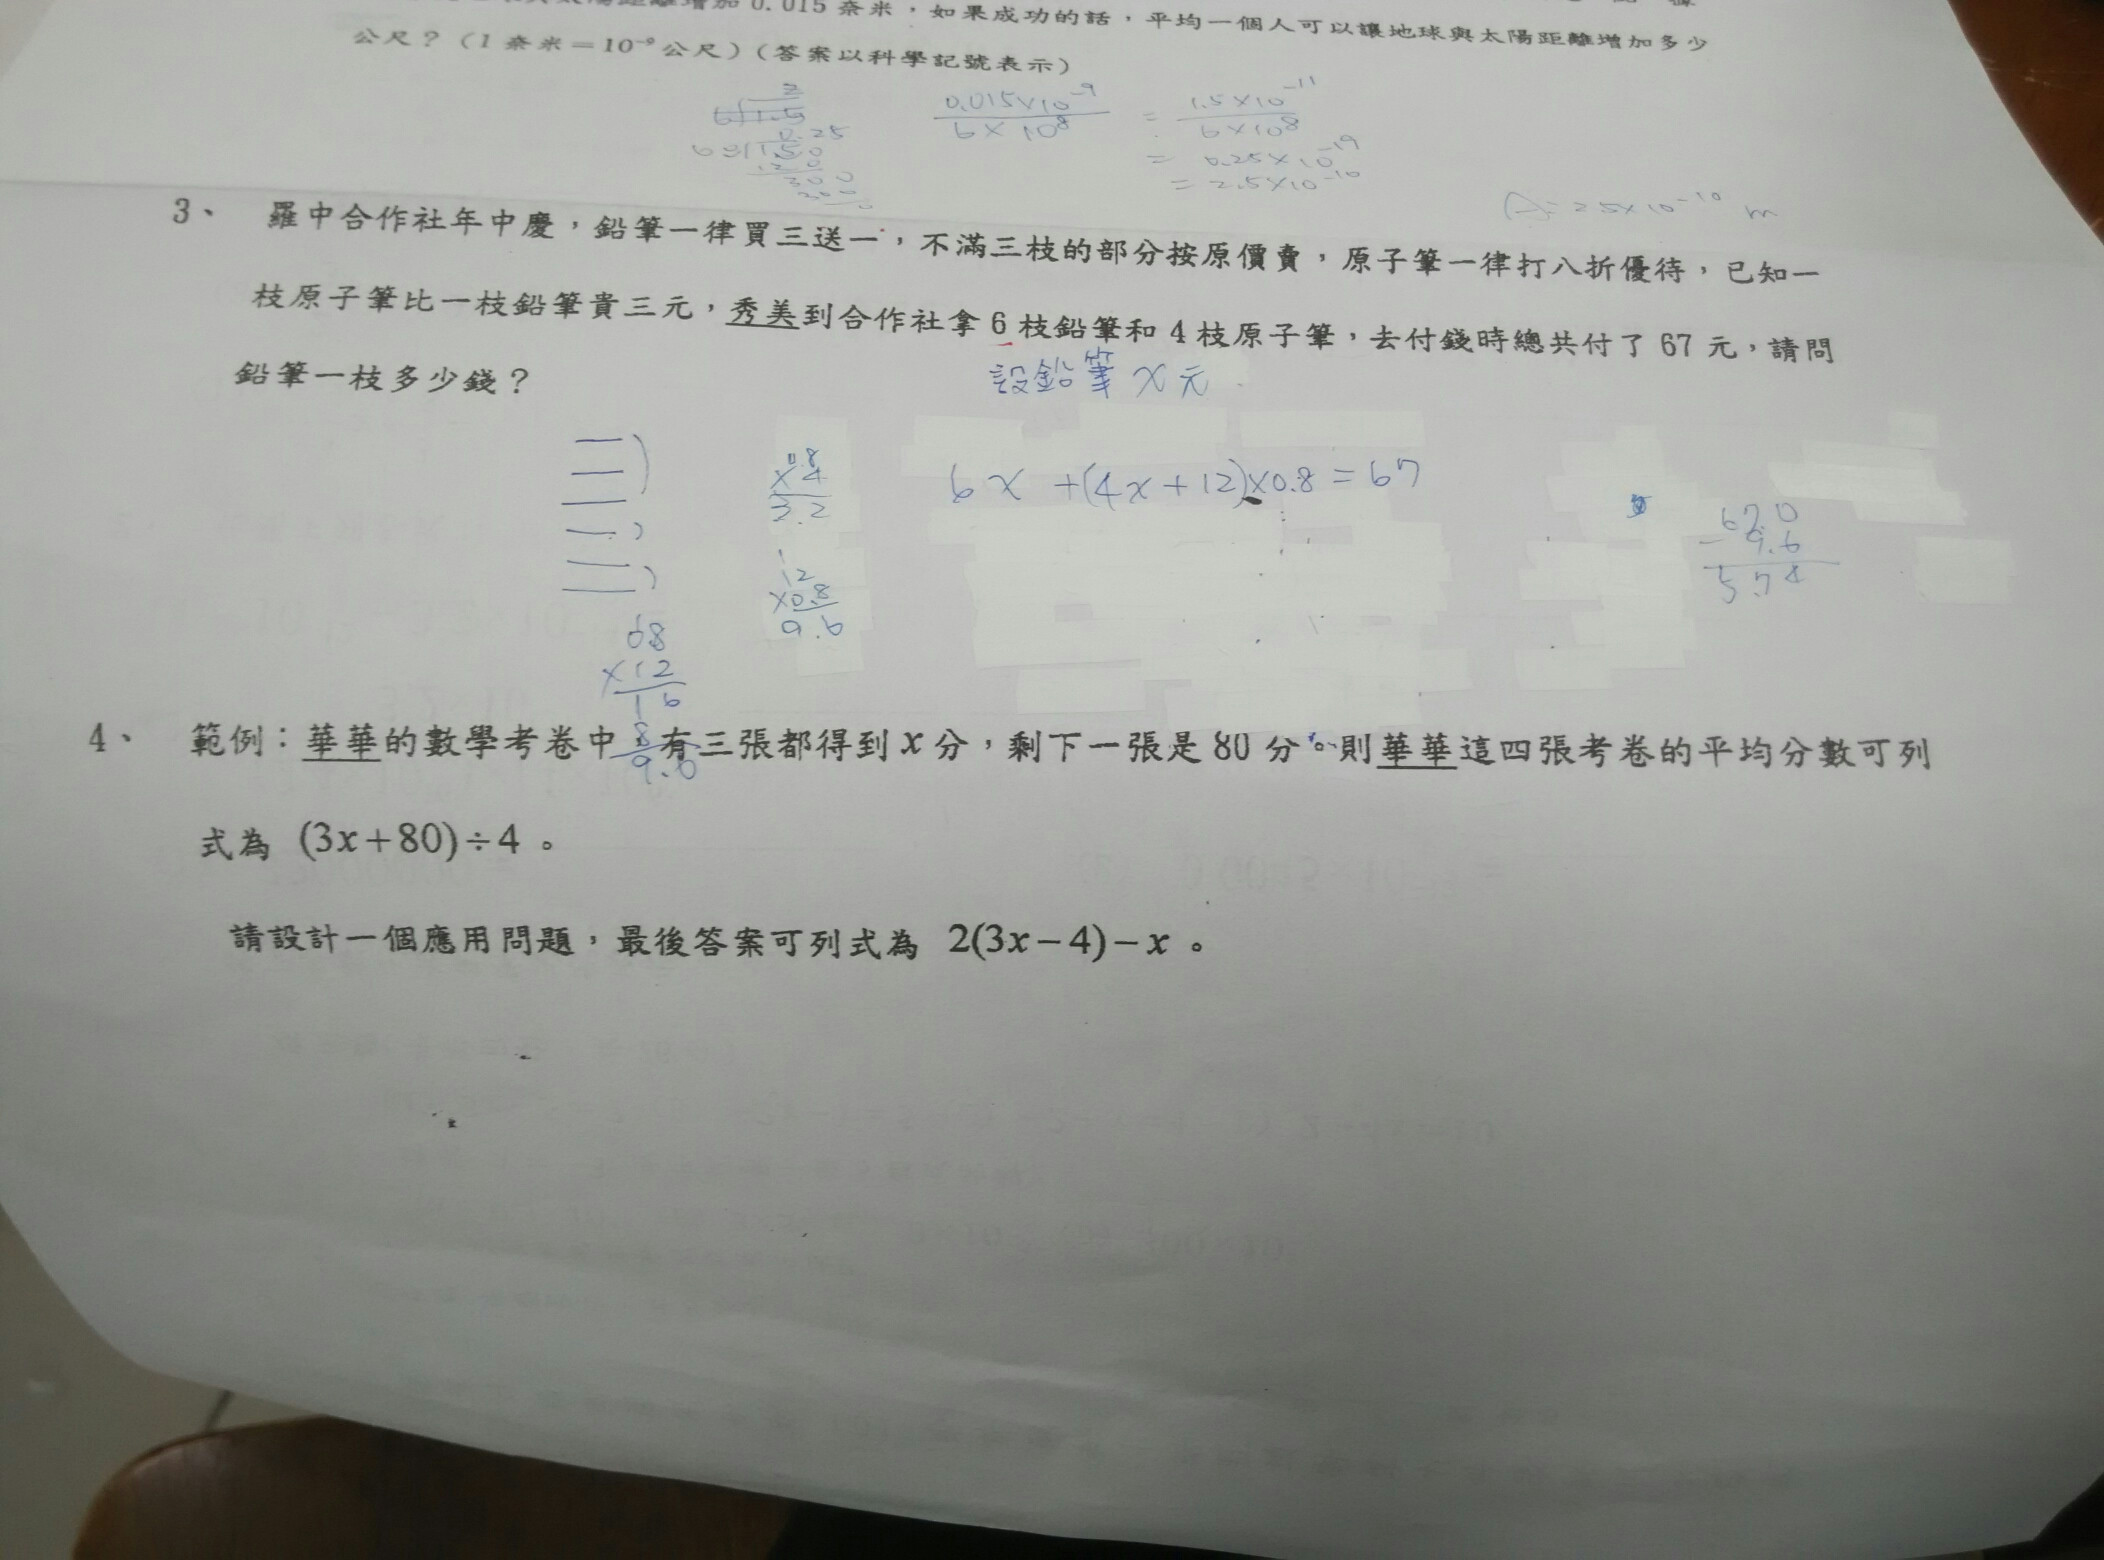 0.015奈米,如果成功的話,平均一個人可以讓地球與太陽距離增加多少
公尺?(1奈米=10⁻⁹公尺)(答案以科學記號表示)
2
6 1.5
0.25
1.50
12 0
300
300
0
0.015×10⁻⁹ / 6×10⁸ = 1.5×10⁻¹¹ / 6×10⁸
= 0.25×10⁻¹⁹
= 2.5×10⁻¹⁰
A: 2.5×10⁻¹⁰ m
3、 羅中合作社年中慶,鉛筆一律買三送一,不滿三枝的部分按原價賣,原子筆一律打八折優待,已知一
枝原子筆比一枝鉛筆貴三元,秀美到合作社拿6枝鉛筆和4枝原子筆,去付錢時總共付了67元,請問
鉛筆一枝多少錢?
設鉛筆x元
0.8
×4
3.2
6x+(4x+12)×0.8=67
67.0
-9.6
57.4
12
×0.8
9.6
68
×12
16
8
9.6
4、 範例:華華的數學考卷中有三張都得到x分,剩下一張是80分。則華華這四張考卷的平均分數可列
式為 (3x+80)÷4。
請設計一個應用問題,最後答案可列式為 2(3x-4)-x。